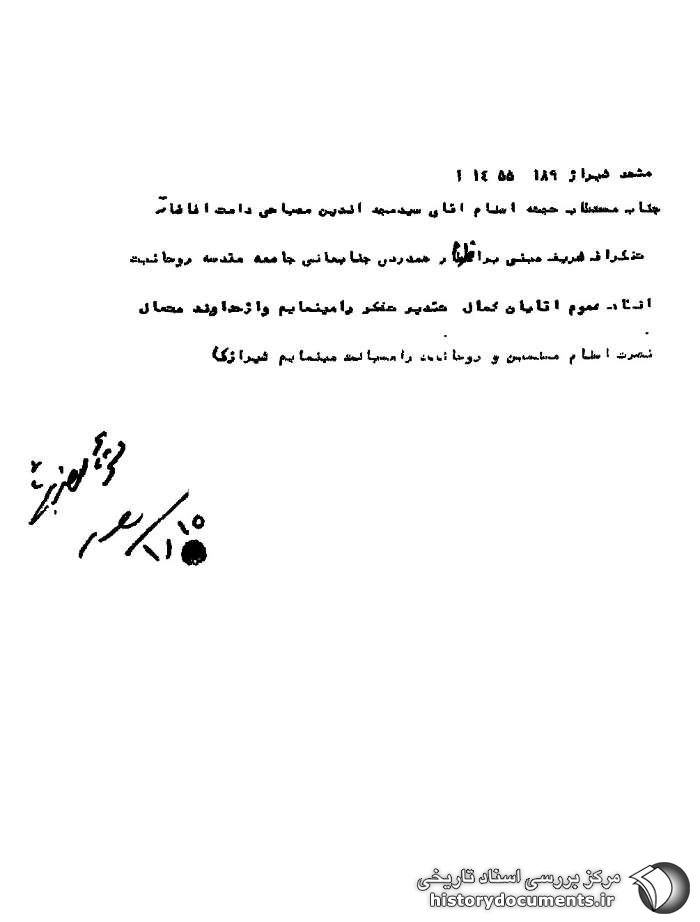 مشهد شیراز ۱۸۹ ۵۵ ۱٤ ۱
جناب مستطاب حجته اسلام اقای سیدمجد الدین مصباحی دامت افاضاته
تلگراف شریف مبنی بر اظهار همدردی جنابعالی جامعه مقدسه روحانیت
عموم اقایان کمال تقدیر تشکر رامینمایم وازخداوند متعال
نصرت اسلام مسلمین و روحانیت رامسئلت مینمایم شیرازی
۱۵
۱۱
مرکز بررسی اسناد تاریخی
historydocuments.ir